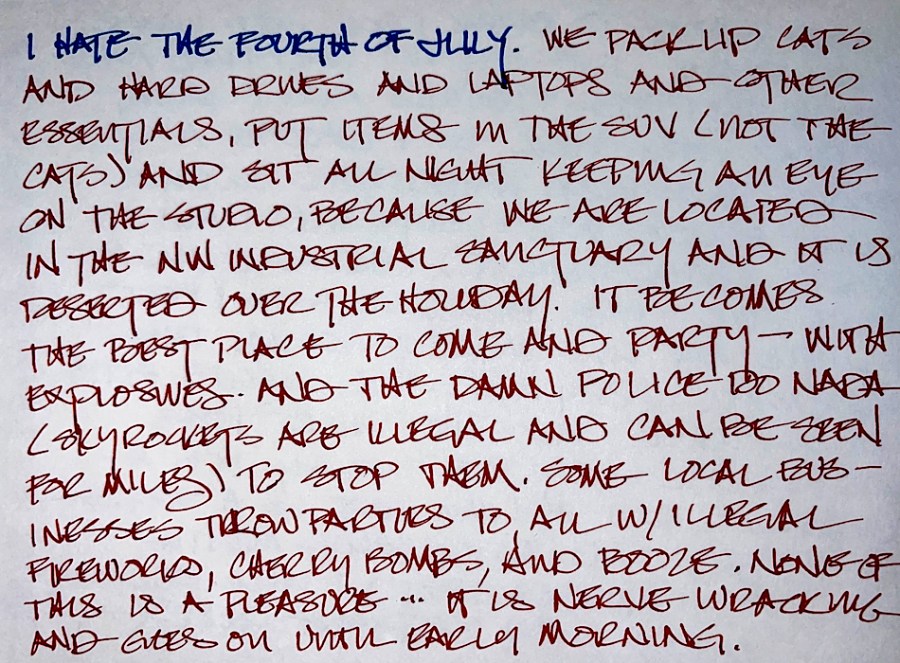 I HATE THE FOURTH OF JULY. WE PACK UP CATS
AND HARD DRIVES AND LAPTOPS AND OTHER
ESSENTIALS, PUT ITEMS IN THE SUV (NOT THE
CATS) AND SIT ALL NIGHT KEEPING AN EYE
ON THE STUDIO, BECAUSE WE ARE LOCATED
IN THE NW INDUSTRIAL SANCTUARY AND IT IS
DESERTED OVER THE HOLIDAY. IT BECOMES
THE BEST PLACE TO COME AND PARTY — WITH
EXPLOSIVES. AND THE DAMN POLICE DO NADA
(SKYROCKETS ARE ILLEGAL AND CAN BE SEEN
FOR MILES) TO STOP THEM. SOME LOCAL BUS-
INESSES THROW PARTIES TO ALL W/ ILLEGAL
FIREWORKS, CHERRY BOMBS, AND BOOZE. NONE OF
THIS IS A PLEASURE ... IT IS NERVE WRACKING
AND GOES ON UNTIL EARLY MORNING.